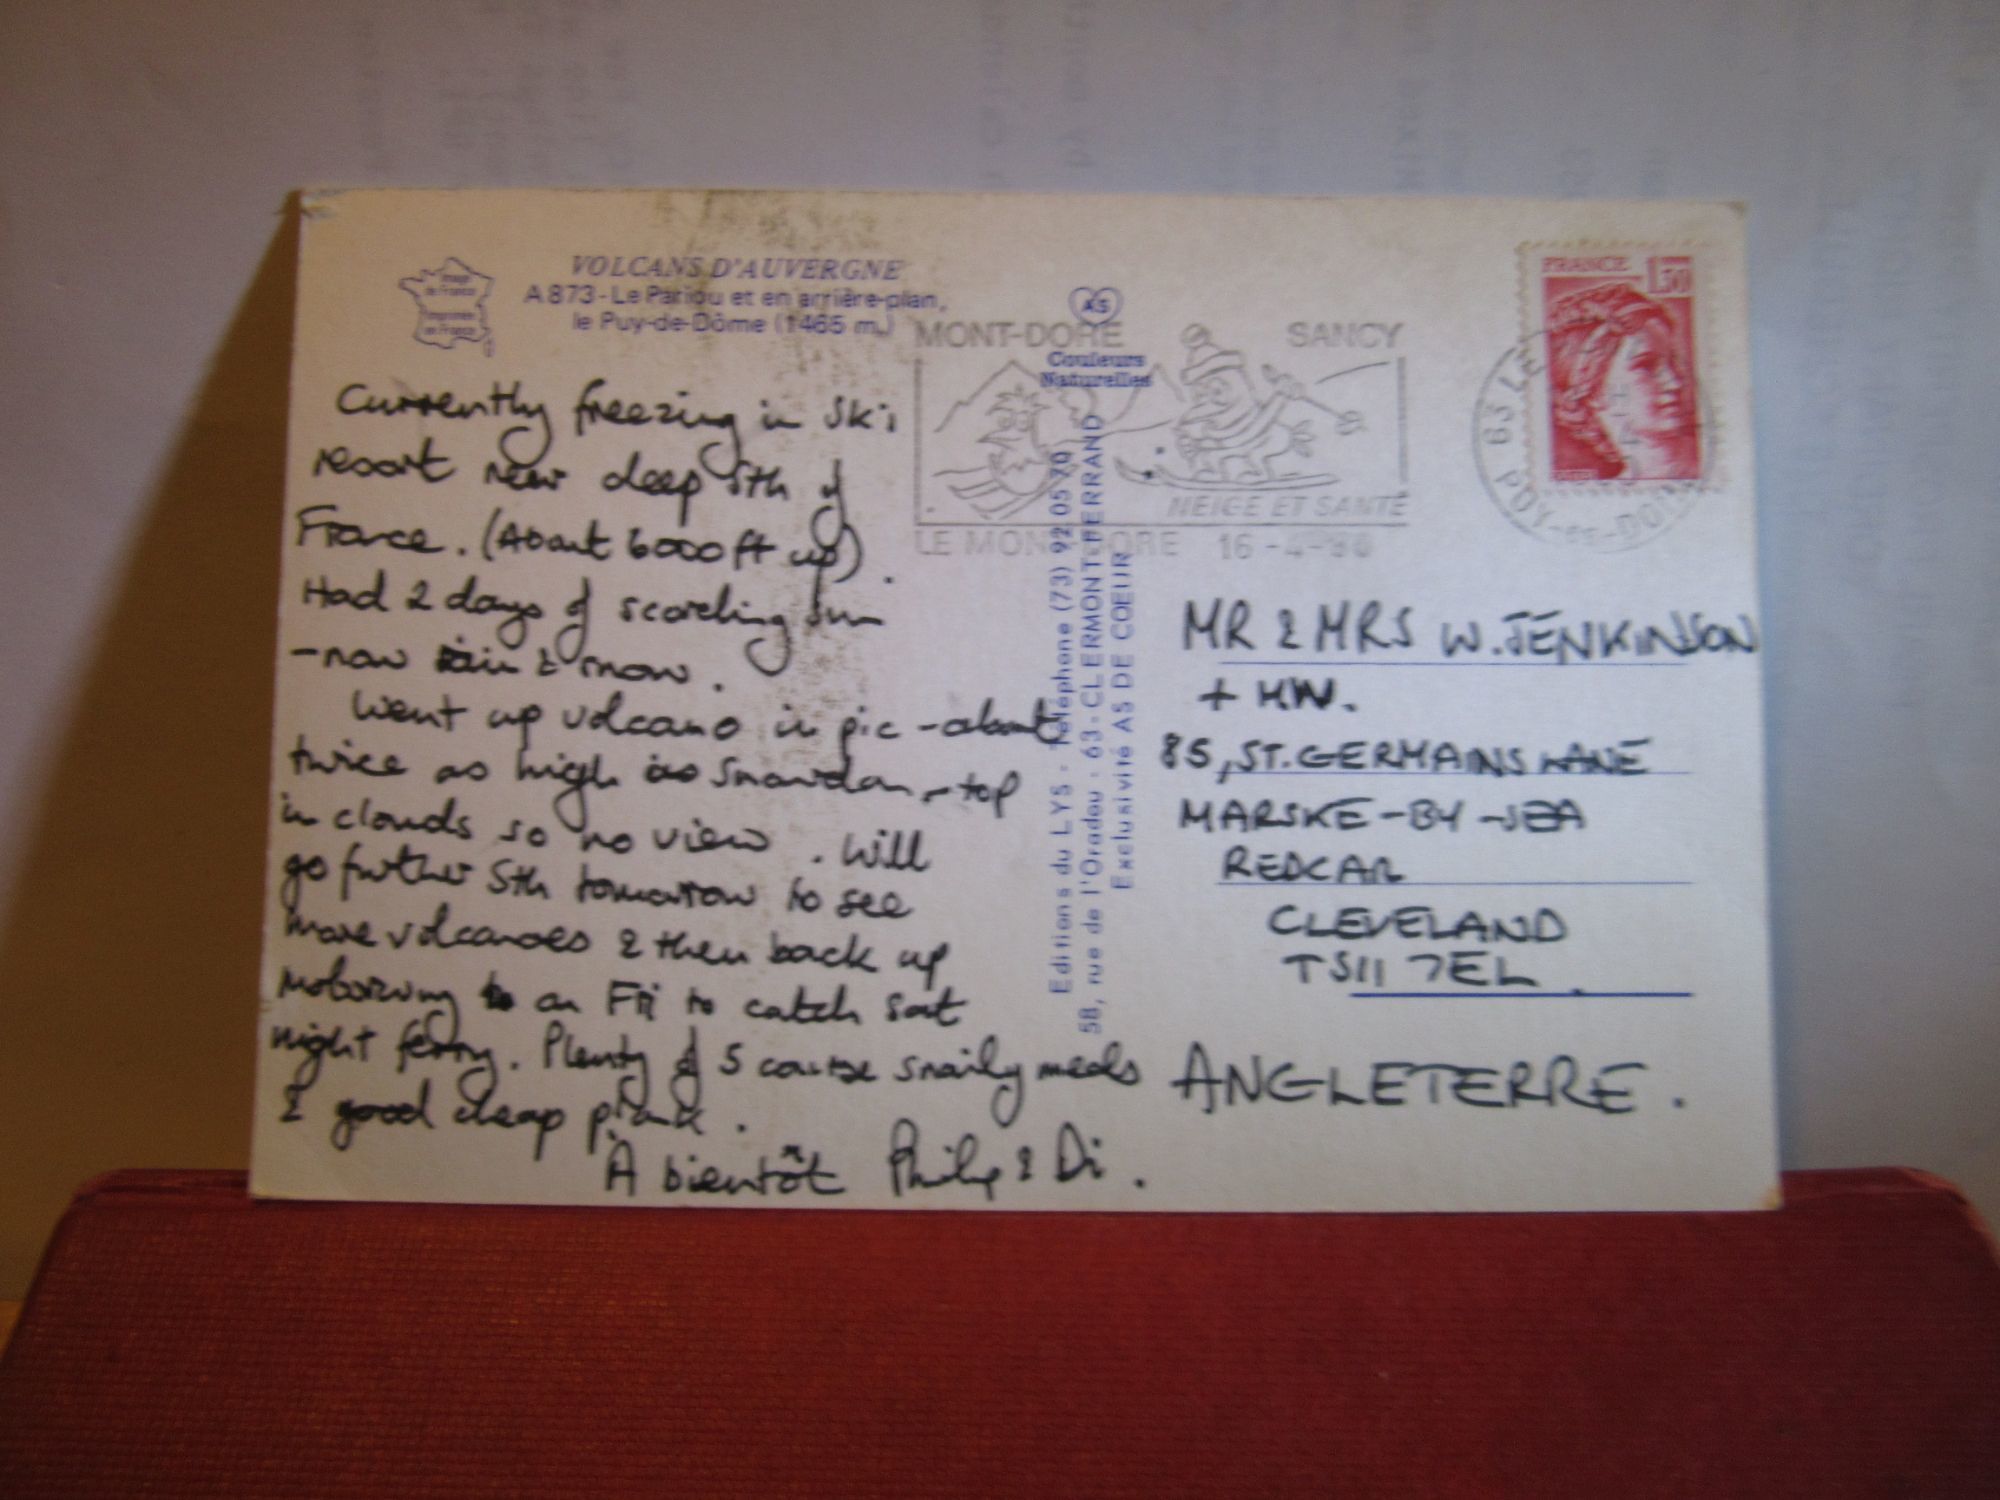 VOLCANS D'AUVERGNE
A 873 - Le Pariou et en arrière-plan,
le Puy-de-Dôme (1465 m.)
Image
de France
Imprimée
en France
Currently freezing in Ski
resort near deep Sth of
France. (About 6000 ft up).
Had 2 days of scorching sun
- now rain & snow.
Went up volcano in pic - about
twice as high as Snowdon - top
in clouds so no view. Will
go further Sth tomorrow to see
more volcanoes & then back up
motorway on Fri to catch sat
night ferry. Plenty of 5 course snaily meals
& good cheap plonk.
À bientôt Philip & Di.
AS
Couleurs
Naturelles
Editions du LYS - Téléphone (73) 92 05 70
58, rue de l'Oradou - 63 - CLERMONT-FERRAND
Exclusivité AS DE COEUR
MONT-DORE SANCY
NEIGE ET SANTÉ
LE MONT-DORE 16-4-80
FRANCE 1,30
63 LE
PUY-DE-DOME
MR & MRS W. JENKINSON
+ HW.
85, ST. GERMAINS LANE
MARSKE-BY-SEA
REDCAR
CLEVELAND
TS11 7EL.
ANGLETERRE.